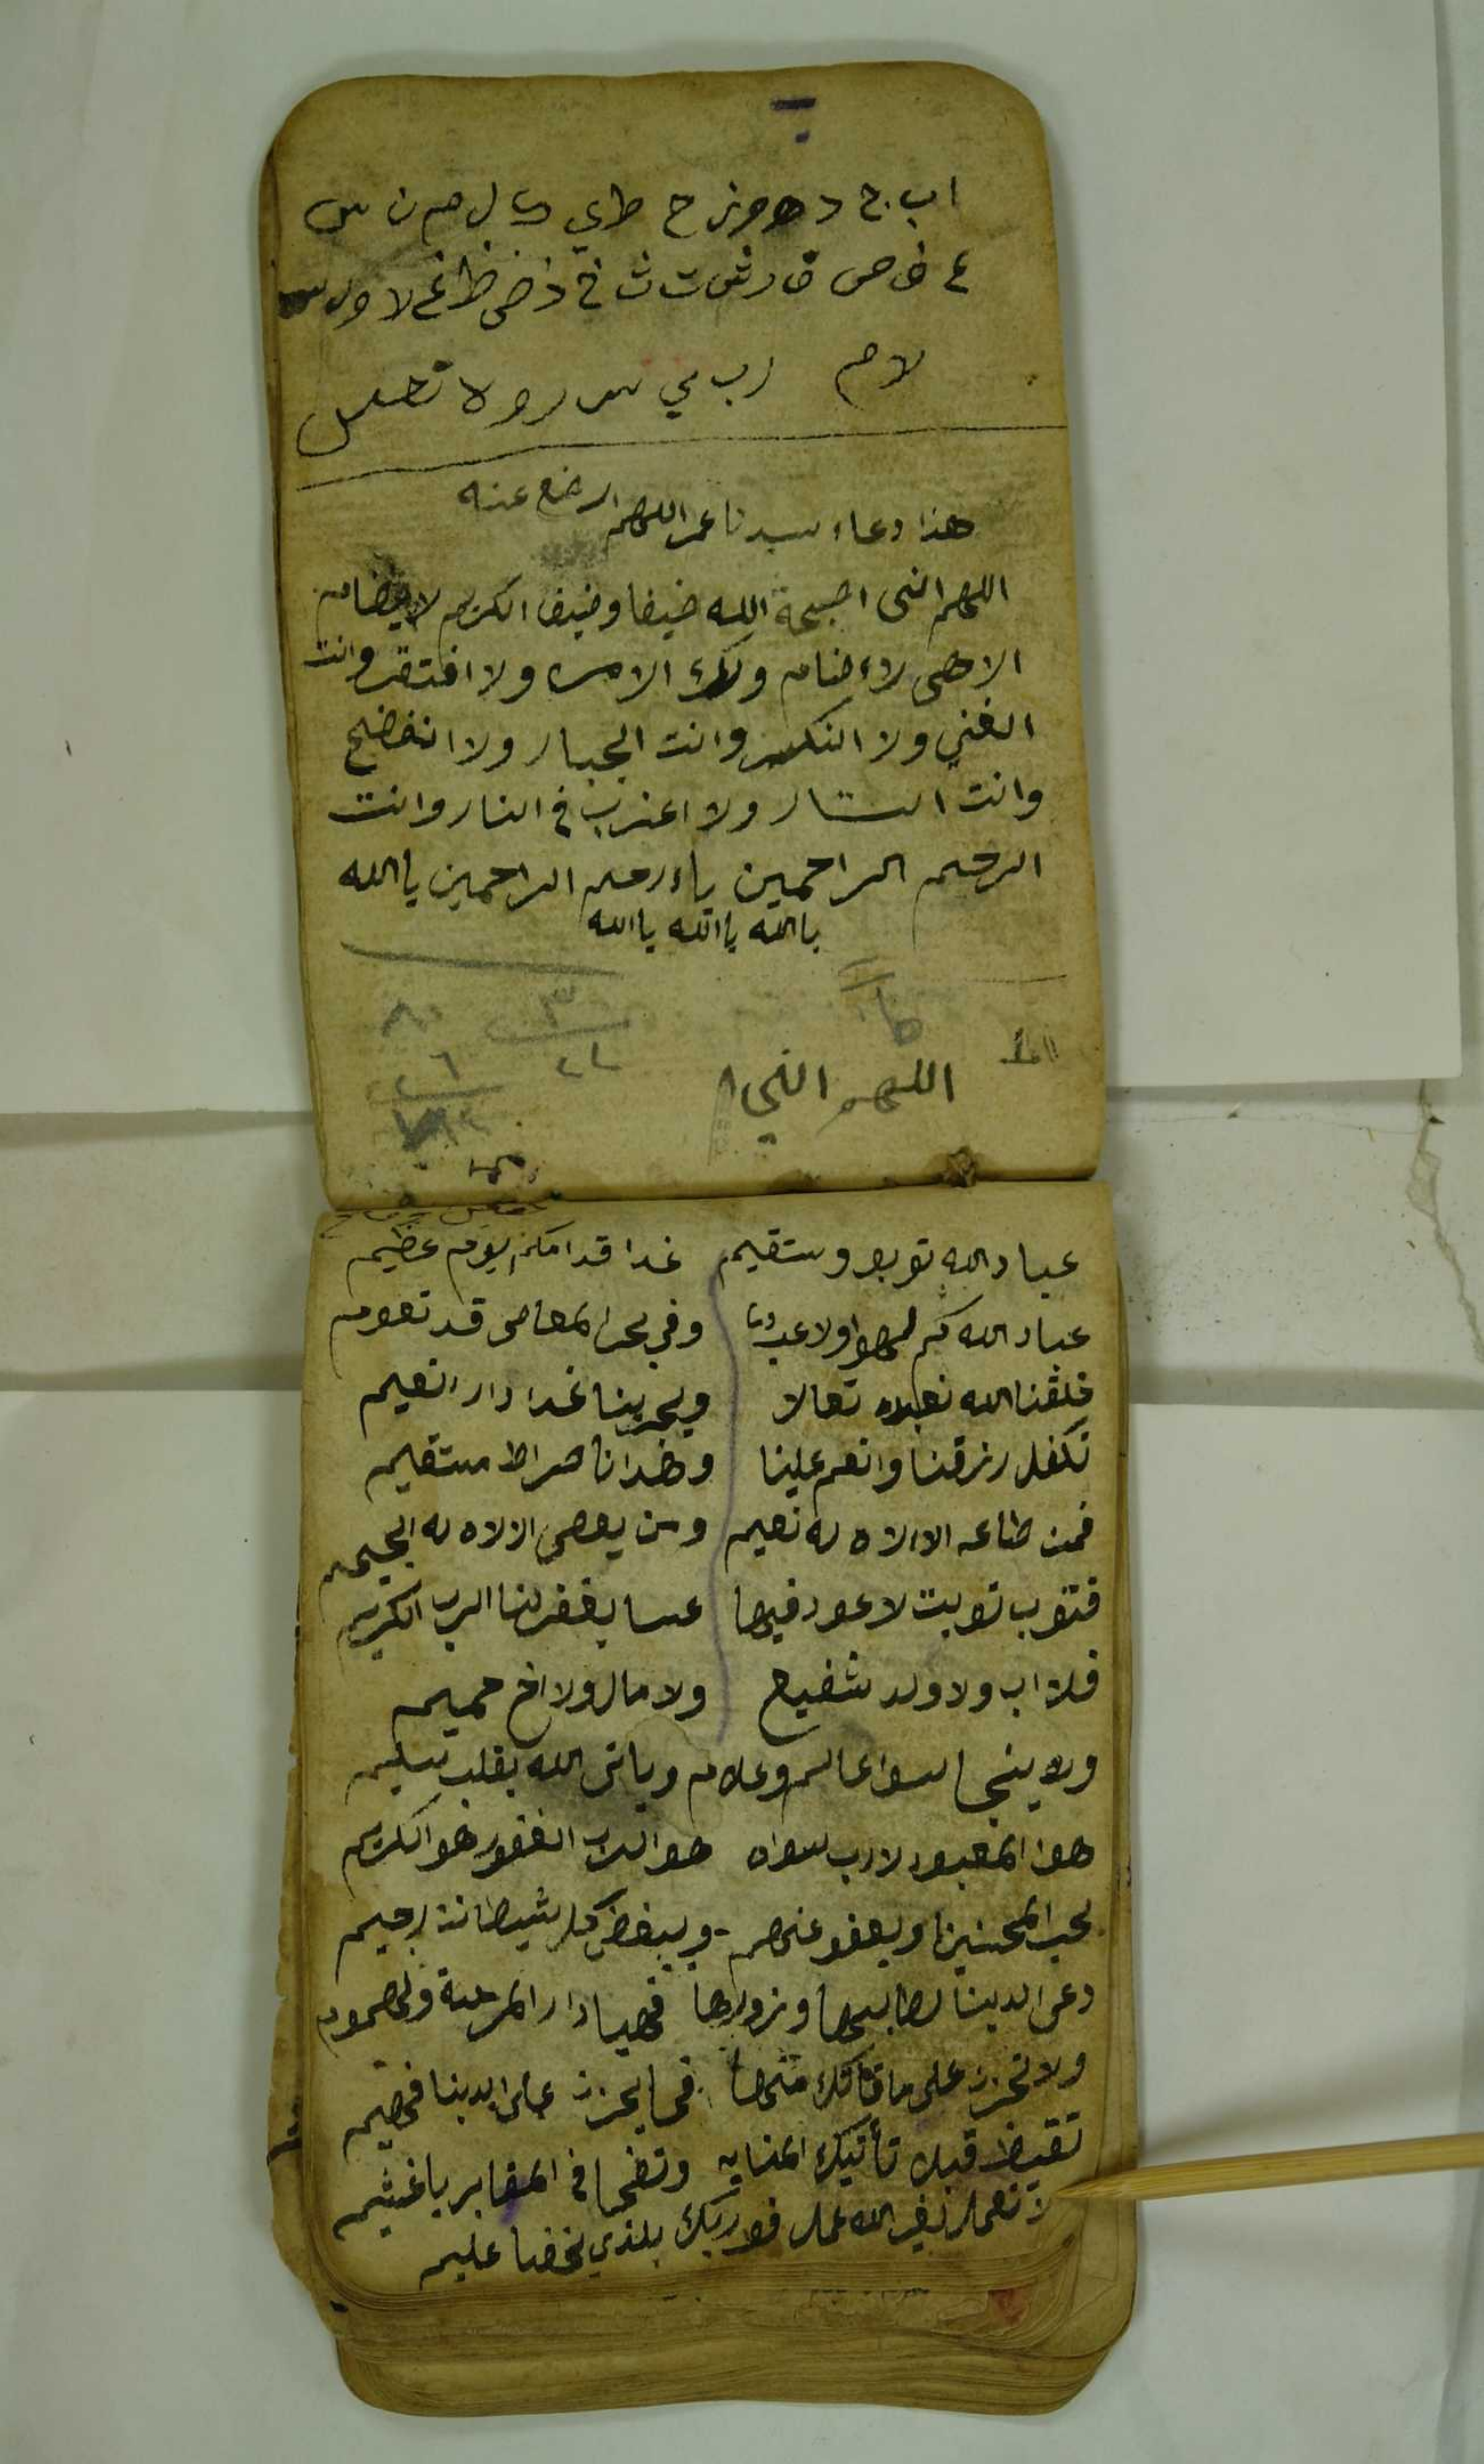 ا ب ج د ه و ز ح ط ي ك ل م ن س
ع ف ص ق ر ش ت ث خ ذ ض ظ غ لا
لا م رب ي س ر و لا تعسر
هذا دعاء سيدنا عمر اللهم ارضع عنه
اللهم انني اصبحة الله ضيفا وضيف الكريم لا يضام
الاهي لا اضام ولك الامر ولا افتقر وانت
الغني ولا انكسر وانت الجبار ولا انفضح
وانت الستار ولا اعذب في النار وانت
الرحم الراحمين ياء رحم الراحمين يا الله
يا الله يا الله يا الله
٣ ٨٠
٢٢ ٢٦
اللهم انني ا
عباد الله توبو وستقيم غدا قدامكم يوم عظيم
عباد الله كم لهوا ولاعب وفي بحر المعاصي قد تعوم
خلقنا الله نعبده تعالا ويجزينا غدا دار النعيم
تكفل رزقنا وانعم علينا وهدانا صراط مستقيم
فمن طاعه الا الاه له نعيم ومن يعصي الالاه له الجحيم
فنتوب توبت لا عود فيها عسا يغفر لنا الرب الكريم
فلا اب ولا ولد شفيع ولا مال ولا اخ حميم
ولا ينجا سوا عالم وعلام وياتي الله بقلب سليم
هوا المعبود لا رب سواه هو الرب الغفور هو الكريم
يحب المحسنين ويعفو عنهم - ويبغض كل شيطانن رجيم
دعي الدينا لطالبها وزورها فهيا دار المرحة والهموم
ولا تحزن على ما فاتك منها فما يحزن على الدينا فهيم
تقيض قبل تأتيك المنايه وتضحا في المقابر يا غشيم
لا تعمل بغير الله عمل فو ربك بلذي تخفا عليم